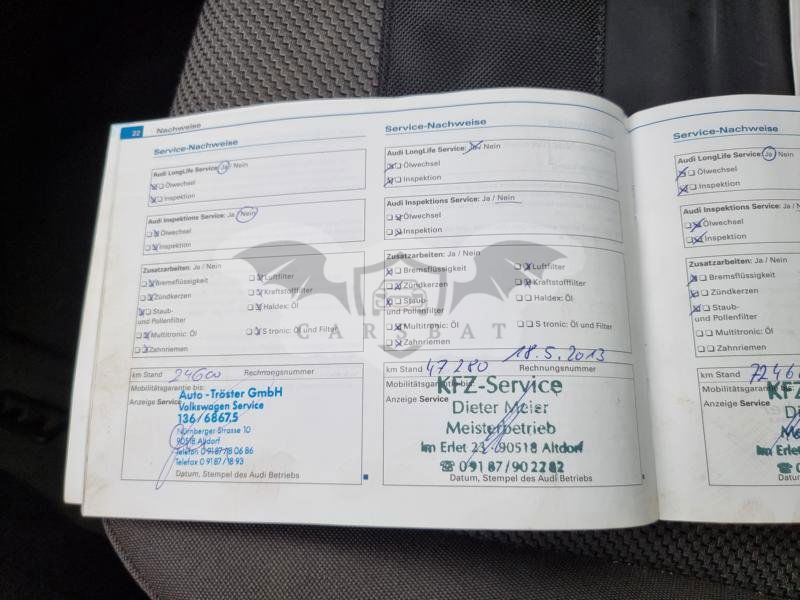 22 Nachweise
Service-Nachweise
Audi LongLife Service: Ja / Nein
Ölwechsel
Inspektion
Audi Inspektions Service: Ja / Nein
Ölwechsel
Inspektion
Zusatzarbeiten: Ja / Nein
Bremsflüssigkeit
Luftfilter
Zündkerzen
Kraftstofffilter
Staub-
und Pollenfilter
Haldex: Öl
Multitronic: Öl
S tronic: Öl und Filter
Zahnriemen
km Stand 24600 Rechnungsnummer
Mobilitätsgarantie bis:
Anzeige Service
Auto-Tröster GmbH
Volkswagen Service
136/68675
Nürnberger Strasse 10
90518 Altdorf
Telefon 09187/8 06 86
Telefax 09187/18 93
Datum, Stempel des Audi Betriebs
Service-Nachweise
Audi LongLife Service: Ja / Nein
Ölwechsel
Inspektion
Audi Inspektions Service: Ja / Nein
Ölwechsel
Inspektion
Zusatzarbeiten: Ja / Nein
Bremsflüssigkeit
Luftfilter
Zündkerzen
Kraftstofffilter
Staub-
und Pollenfilter
Haldex: Öl
Multitronic: Öl
S tronic: Öl und Filter
Zahnriemen
18.5.2013
km Stand 47 280 Rechnungsnummer
Mobilitätsgarantie bis:
Anzeige Service
KFZ-Service
Dieter Meier
Meisterbetrieb
Im Erlet 23 90518 Altdorf
☎ 09187/902282
Datum, Stempel des Audi Betriebs
Service-Nachweise
Audi LongLife Service: Ja / Nein
Ölwechsel
Inspektion
Audi Inspektions Service: Ja / N
Ölwechsel
Inspektion
Zusatzarbeiten: Ja / Nein
Bremsflüssigkeit
Zündkerzen
Staub-
und Pollenfilter
Multitronic: Öl
Zahnriemen
km Stand 7246
Mobilitätsgarantie
Anzeige Service
KFZ
Die
Meis
Im Erlet
☎ 0
Datum, Stem
CARSBAT